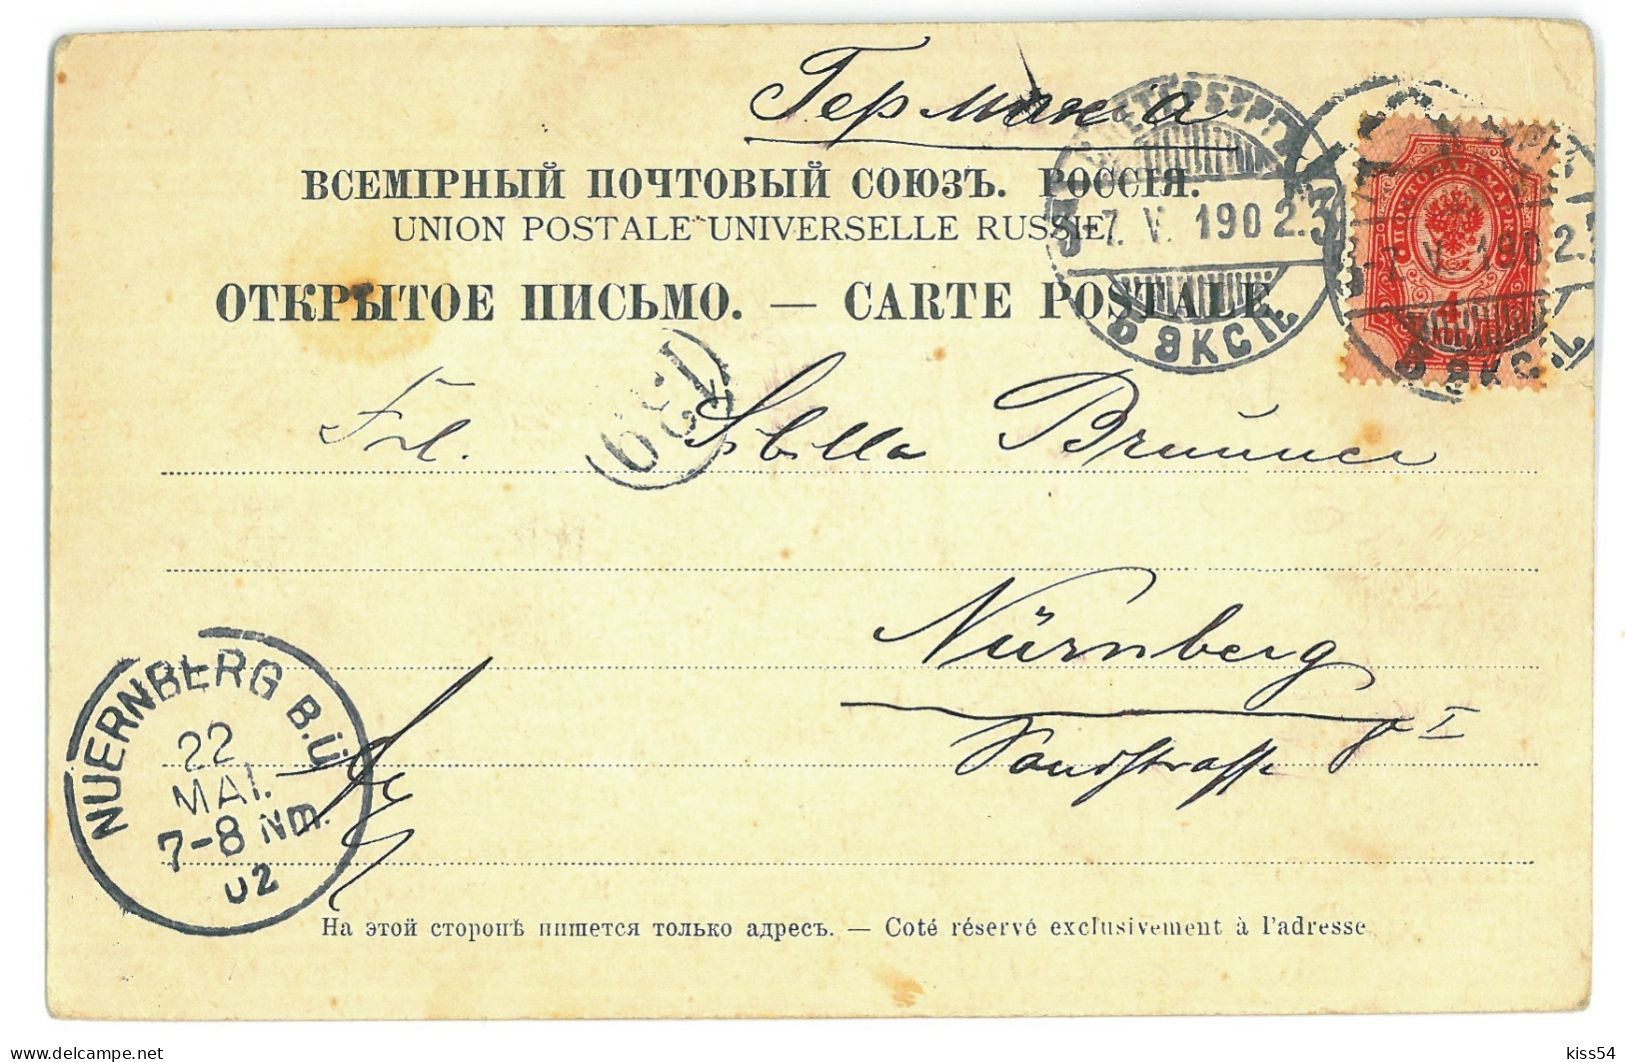 Германiа
ВСЕМIРНЫЙ ПОЧТОВЫЙ СОЮЗЪ. РОССIЯ.
UNION POSTALE UNIVERSELLE RUSSIE
ОТКРЫТОЕ ПИСЬМО. — CARTE POSTALE.
ПЕТЕРБУРГЪ
-7. V. 1902.
ЭКСП.
-7 V. 1902.
ЭКСП.
4
Frl. Sibilla Brunner
Nürnberg
Sandstrasse
I
NUERNBERG B.Ü
22
MAI.
7-8 Nm.
02
На этой сторонѣ пишется только адресъ. — Coté réservé exclusivement à l'adresse
kiss54